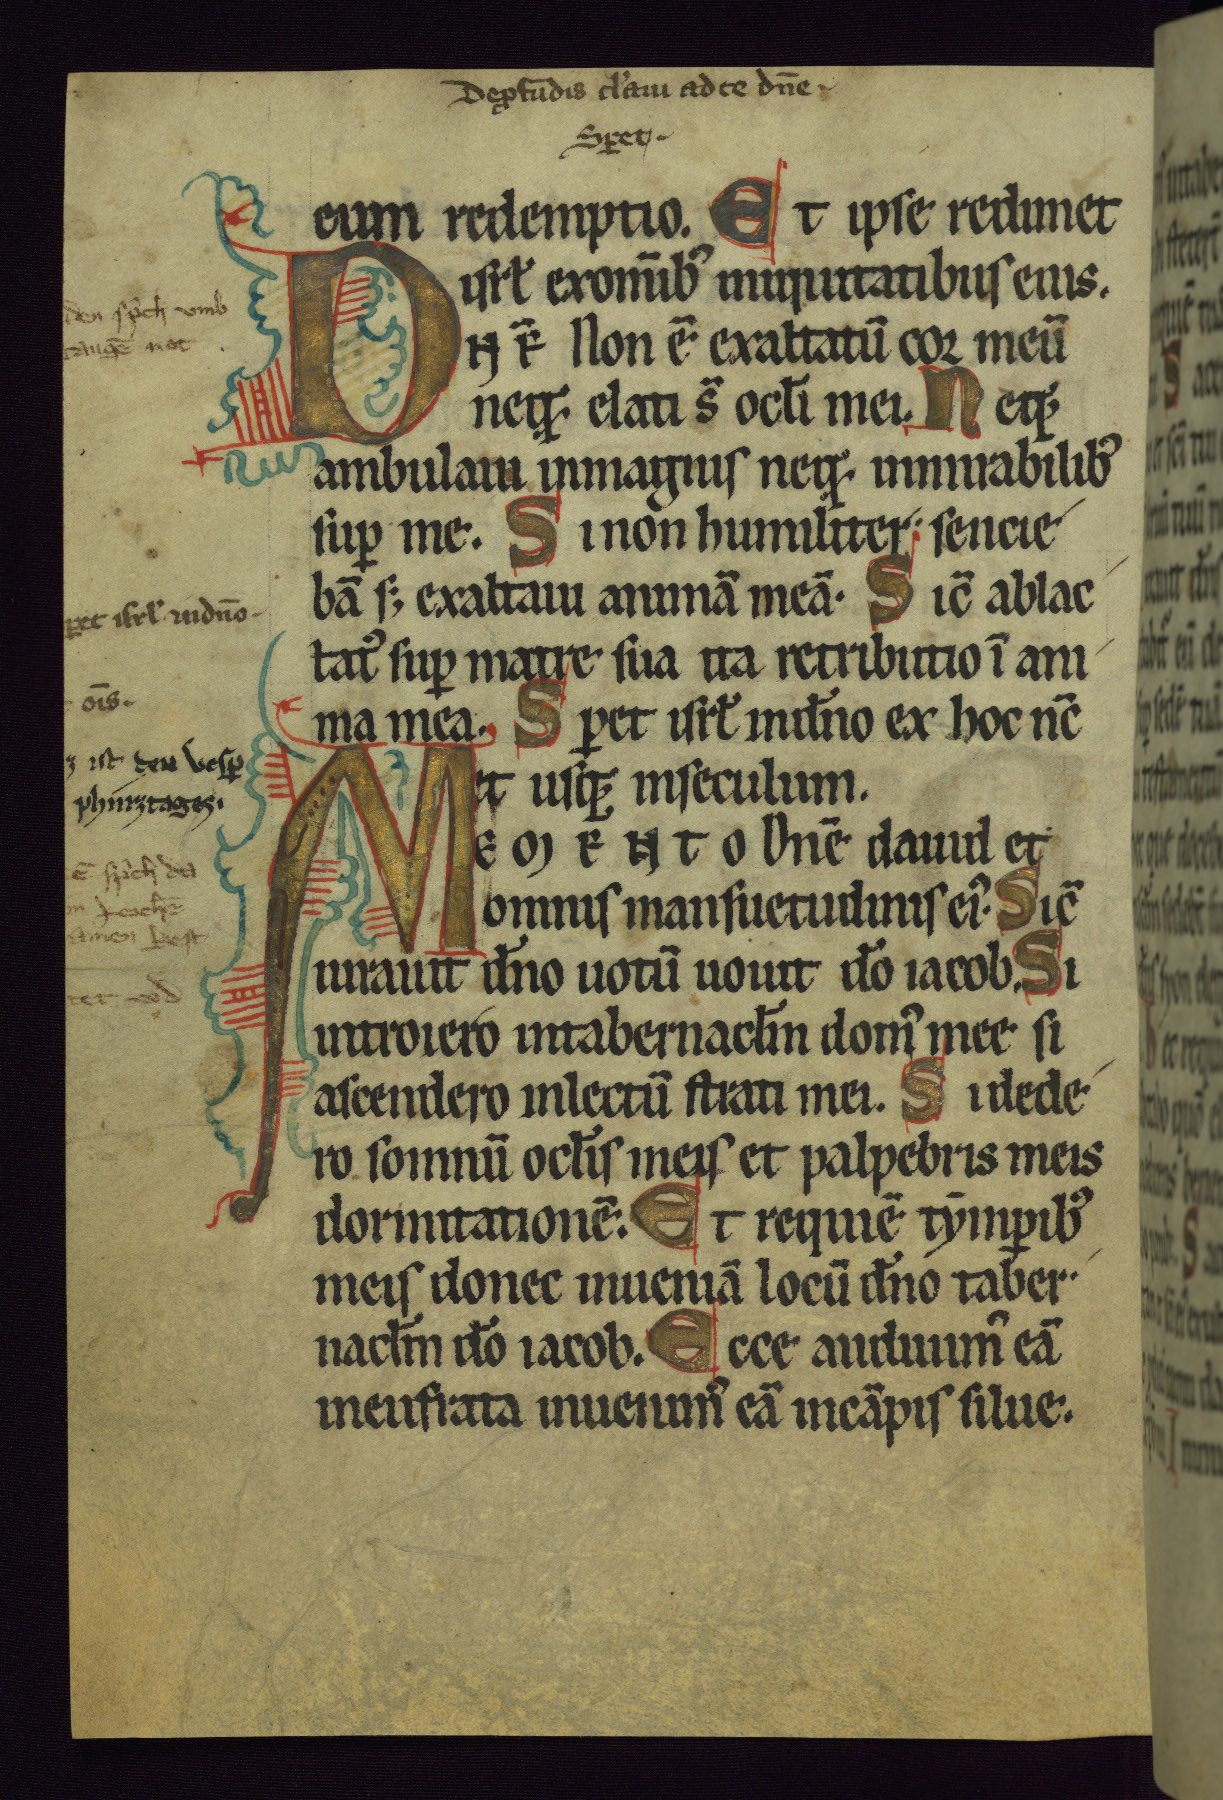 De ꝓfūdis cl'aui ad te dn̄e
Sꝑet
eum redemptio. Et ipse redimet
isrl' ex omīb' iniquitatibus eius.
DNĒ Non ē exaltatū cor meū
neq; elati s̄ ocl'i mei. Neq;
ambulaui in magnis neq; in mirabilib'
suꝑ me. Si non humiliter sencie
bā s; exaltaui animā meā. Sic̄ ablac
tat' suꝑ matre sua ita retributio ī ani
ma mea. Sꝑet isrl' in dn̄o ex hoc nc̄
et usq; in seculum.
MEMENTO Dn̄e dauid et
omnis mansuetudinis ei'. Sic̄
iurauit dn̄o uotū uouit dō iacob. Si
introiero in tabernacl'm dom' mee si
ascendero in lectū strati mei. Si dede
ro somnū ocl'is meis et palpebris meis
dormitationē. Et requiē tȳmꝑib'
meis donec inueniā locū dn̄o taber
nacl'm dō iacob. Ecce audiuim' eā
in eufrata inuenim' eā in cāpis silue.
den spͥch vmb
ꝑet isrl' in dn̄o
ōis
ist den vesꝑ
phinztagez